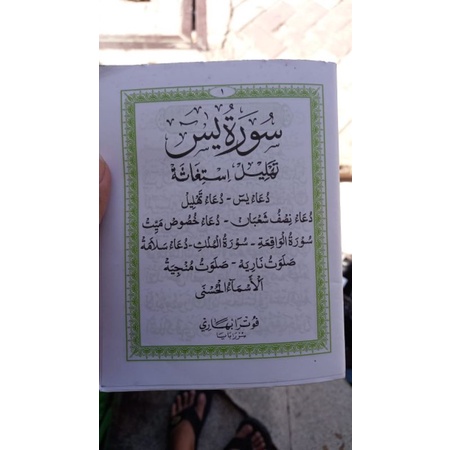 ١
سُورَةُ يٰسٓ
تَهْلِيْل اِسْتِغَاثَة
دُعَاءْ يٰسٓ - دُعَاءْ تَهْلِيْل
دُعَاءْ نِصْفُ شَعْبَانْ - دُعَاءْ خُصُوصْ مَيِّتْ
سُوْرَةُ الْوَاقِعَةِ - سُوْرَةُ الْمُلْكِ - دُعَاءْ سَلَامَةْ
صَلَوٰتْ نَارِيَةْ - صَلَوٰتْ مُنْجِيَةْ
اَلْأَسْمَاءُ الْحُسْنَى
فوترا بهاري
سورابايا